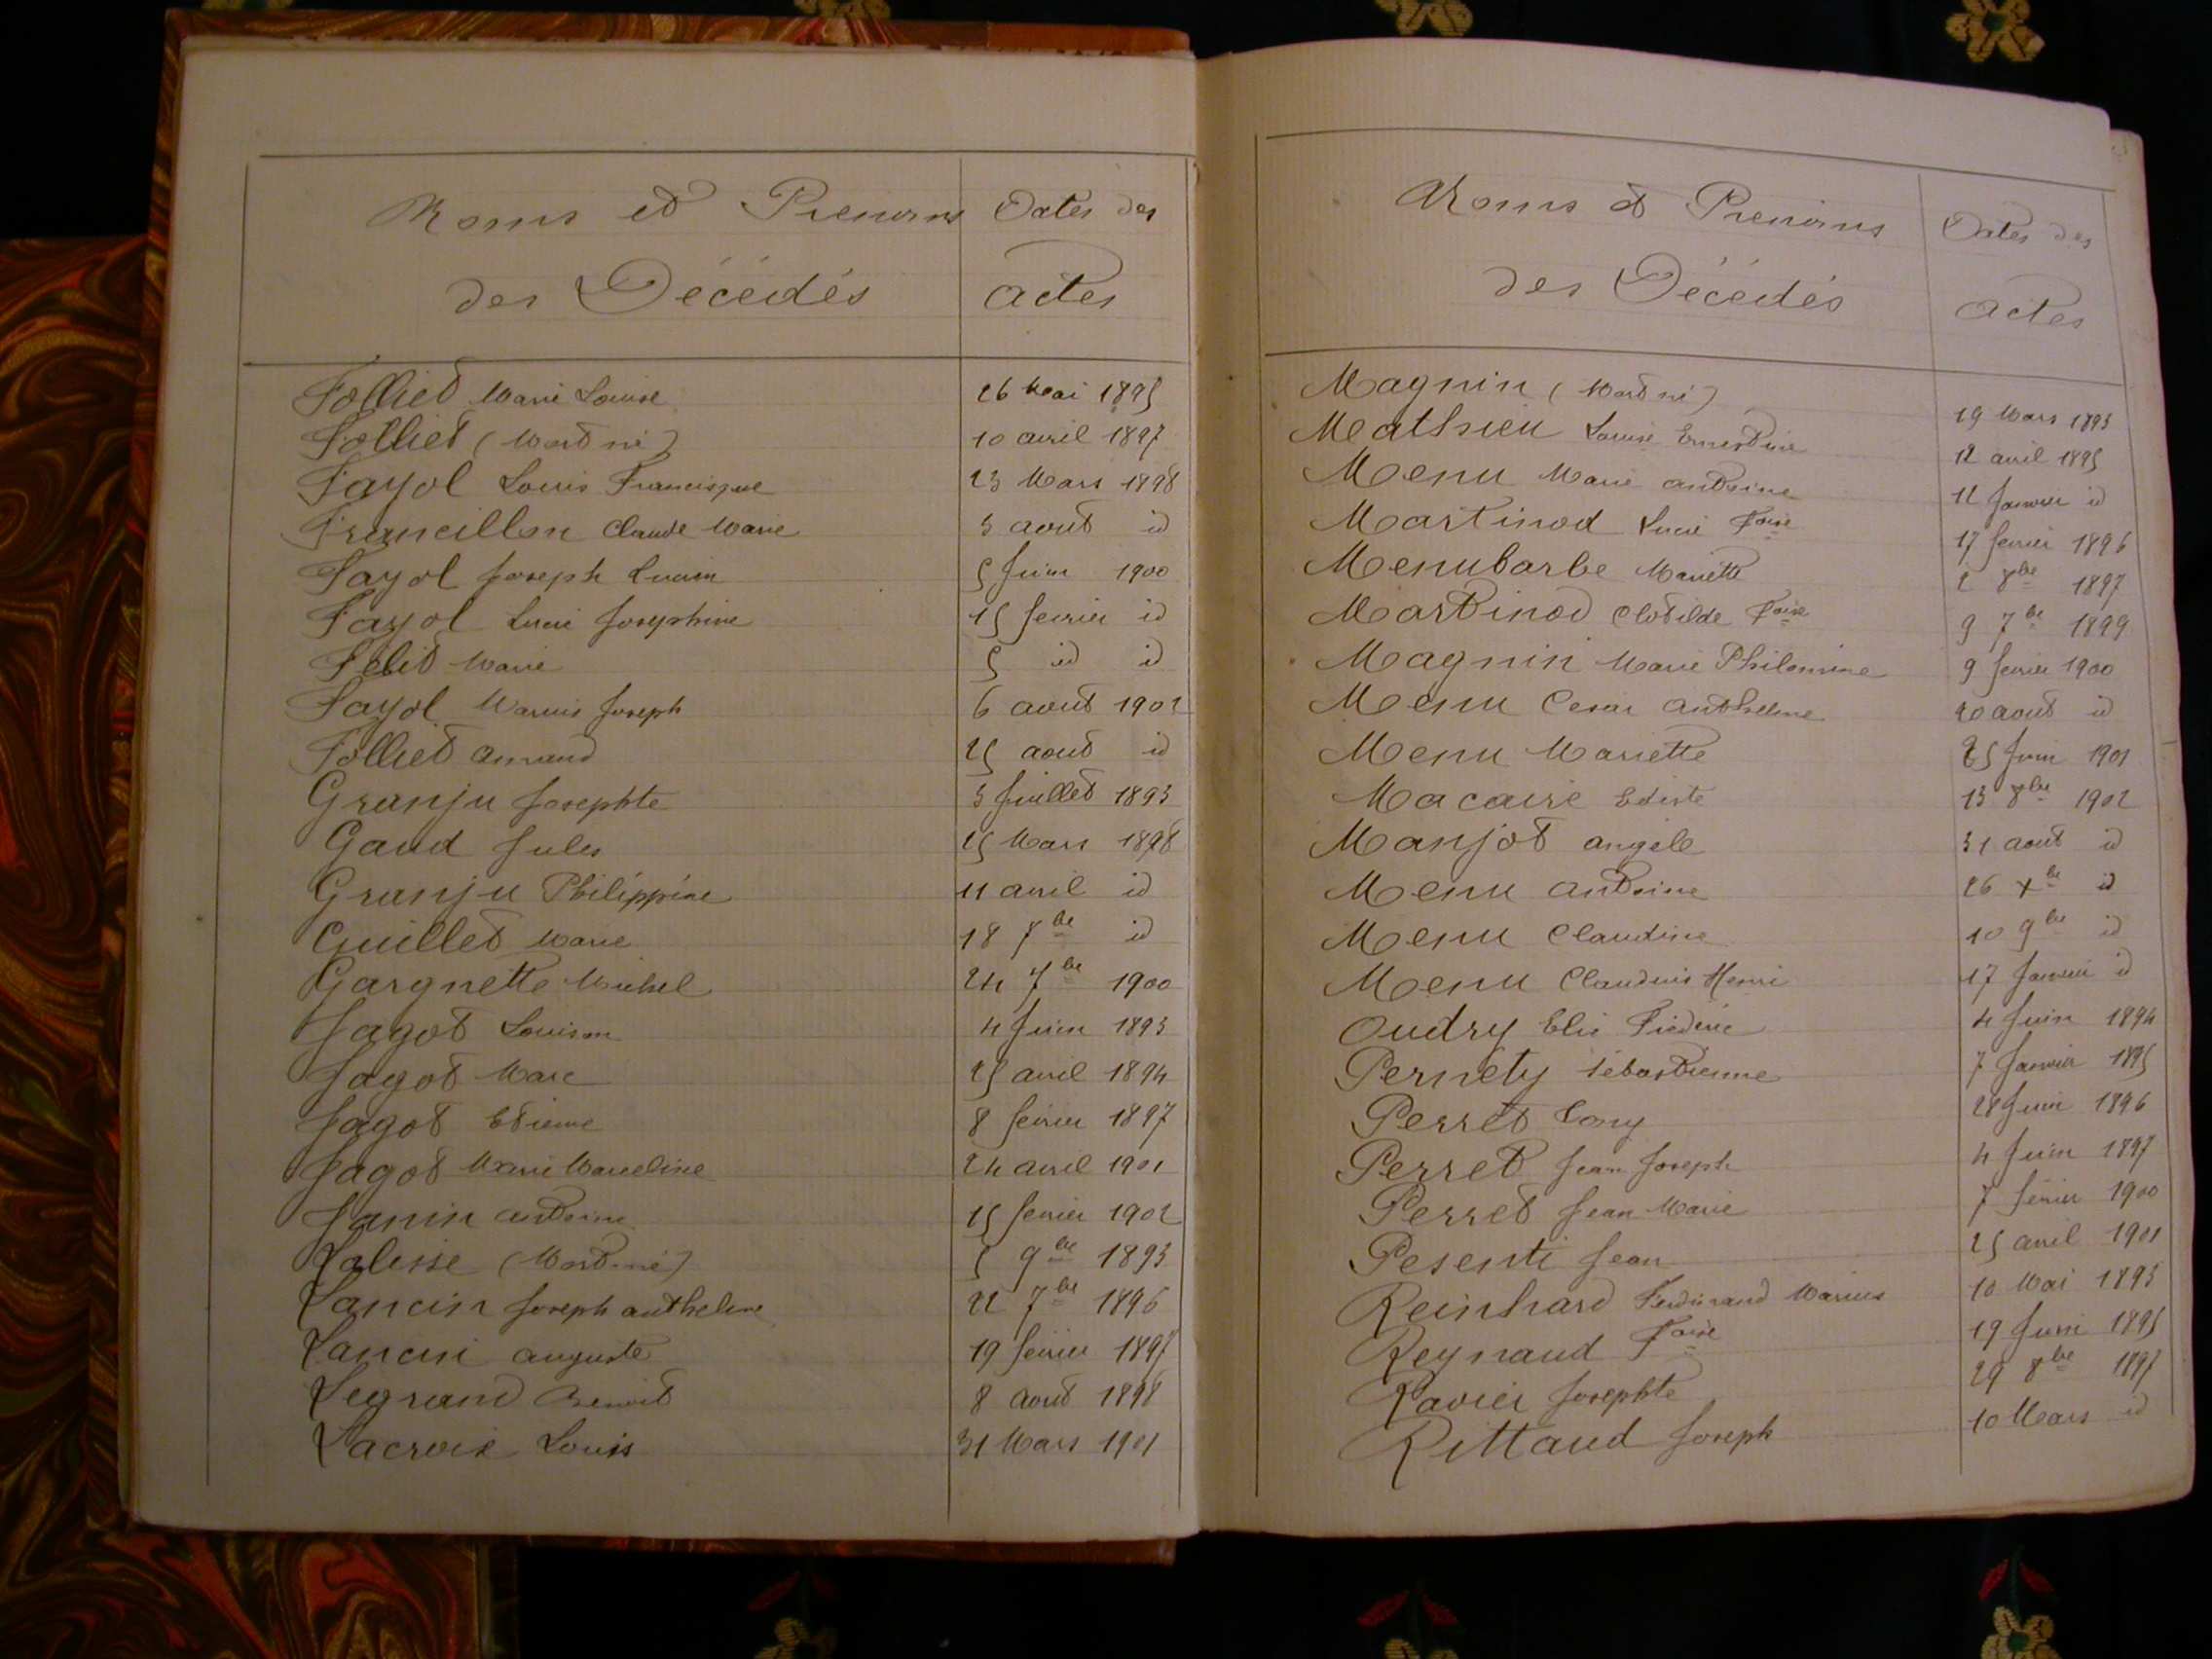 Noms et Prenoms
des Décédés
Dates des
actes
Folliet Marie Louise 26 Mai 1895
Folliet (Mort né) 10 avril 1897
Fayol Louis Francisque 23 Mars 1898
Francillon Claude Marie 3 aout id
Fayol Joseph Lucien 5 Juin 1900
Fayol Lucie Josephine 15 fevrier id
Felit Marie 5 id id
Fayol Marius Joseph 6 aout 1902
Folliet Armand 25 aout id
Granju Josephte 3 Juillet 1893
Gaud Jules 25 Mars 1898
Granju Philippine 11 avril id
Guillet Marie 18 7bre id
Gargnette Michel 24 7bre 1900
Jagot Louison 4 Juin 1893
Jagot Marc 25 avril 1894
Jagot Etienne 8 fevrier 1897
Jagot Marie Marceline 24 avril 1901
Janin antoine 15 fevrier 1902
Lalisse (Mort-né) 5 9bre 1893
Lancin Joseph anthelme 22 7bre 1896
Lancin auguste 19 fevrier 1897
Legrand Benoit 8 Aout 1898
Lacroix Louis 31 Mars 1901
Noms et Prenoms
des Décédés
Dates des
actes
Magnin (Mort né) 19 Mars 1893
Mathieu Louise Ernestine 12 avril 1895
Menu Marie antoine 12 Janvier id
Martinod Lucie Foise 17 fevrier 1896
Menubarbe Mariette 2 8bre 1897
Martinod Clotilde Foise 9 7bre 1899
Magnin Marie Philomine 9 fevrier 1900
Menu Cesar Anthelme 20 aout id
Menu Mariette 25 Juin 1901
Macaire Ediste 13 8bre 1902
Manjot angele 31 aout id
Menu antoine 26 xbre id
Menu Claudine 10 9bre id
Menu Claudius Henri 17 Janvier id
Oudry Elie Frederic 4 Juin 1894
Pernety sébastienne 7 Janvier 1895
Perret Cony 28 Juin 1896
Perret Jean Joseph 4 Juin 1897
Perret Jean Marie 7 fevrier 1900
Pesenti Jean 25 avril 1901
Reinhard Ferdinand Marius 10 Mai 1893
Reynaud Foise 19 Juin 1895
Ravier Josephte 29 8bre 1897
Rittaud Joseph 10 Mars id